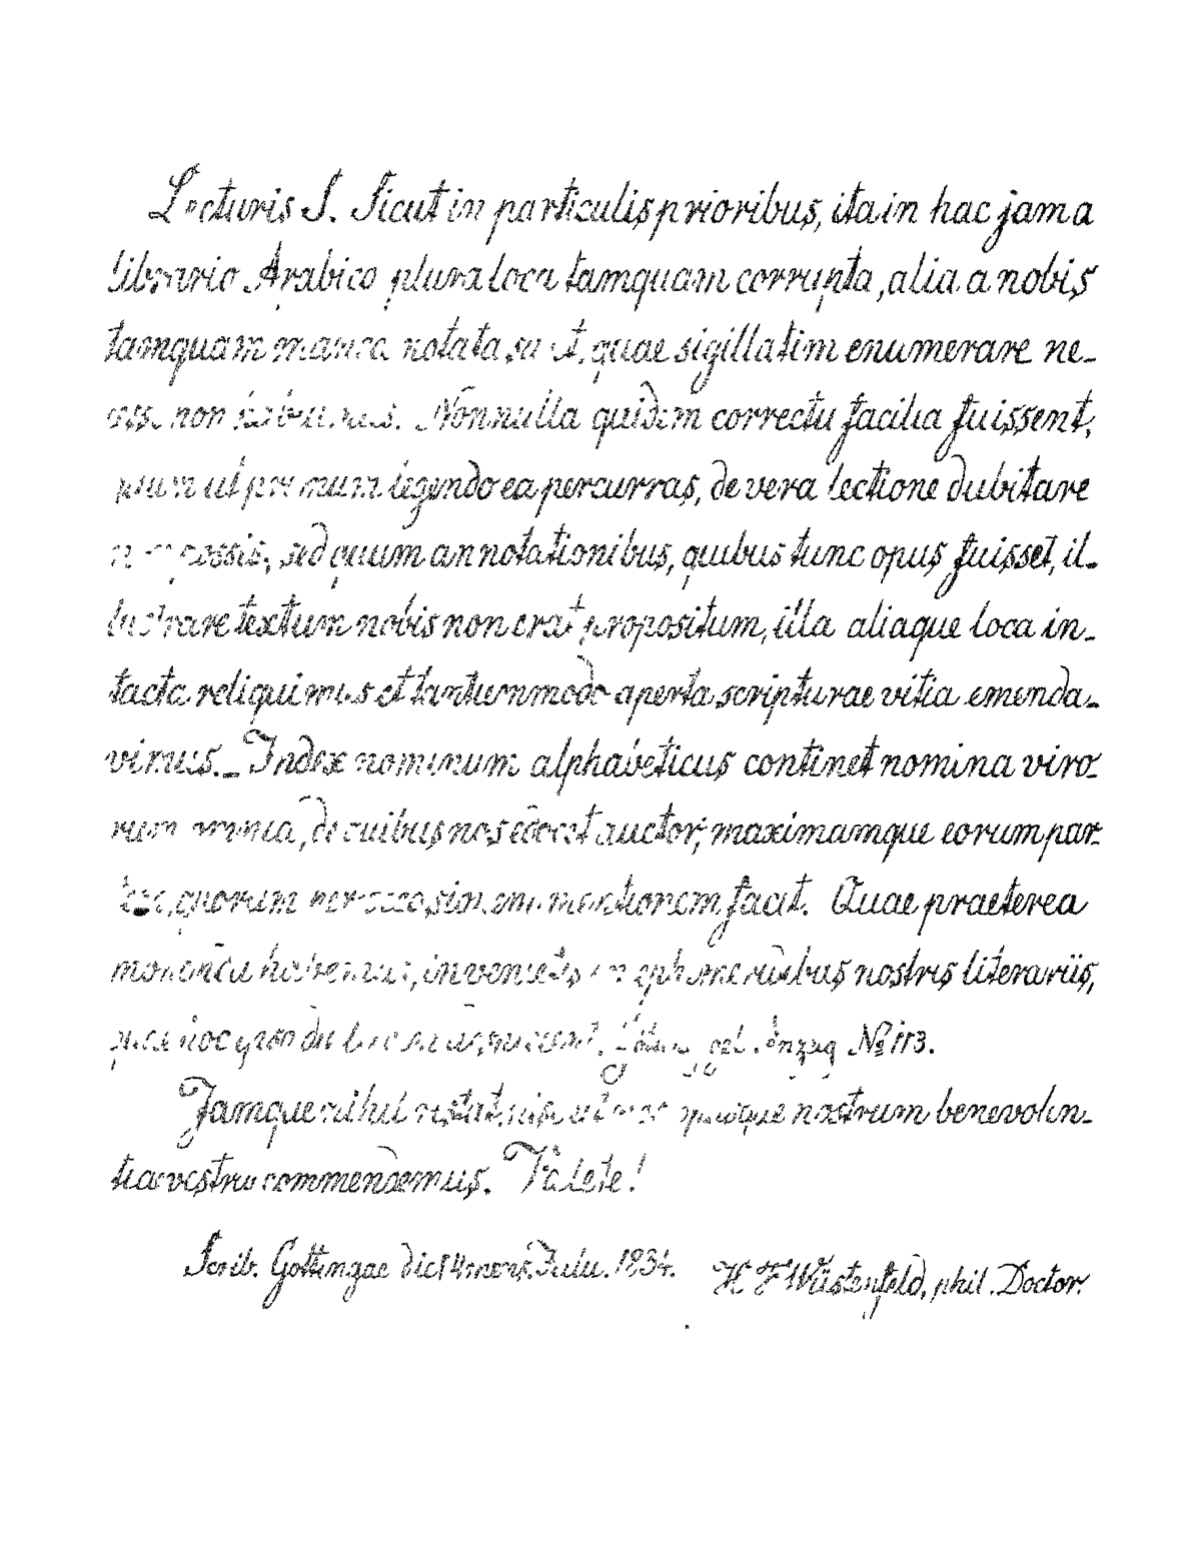 Lecturis S. Sicut in particulis prioribus, ita in hac jam a
librario Arabico plura loca tamquam corrupta, alia a nobis
tamquam manca notata sunt, quae sigillatim enumerare ne-
cesse non habuimus. Nonnulla quidem correctu facilia fuissent,
quum ut primum legendo ea percurras, de vera lectione dubitare
possis, sed quum annotationibus, quibus tunc opus fuisset, il-
lustrare textum nobis non erat propositum, illa aliaque loca in-
tacta reliquimus et tantummodo aperta scripturae vitia emenda-
vimus._ Index nominum alphabeticus continet nomina viro-
rum omnia, de quibus nos edocet auctor, maximamque eorum par-
tem, quorum per occasionem mentionem facit. Quae praeterea
monenda habemus, invenietis in ephemeridibus nostris literariis,
quae hoc . No 113.
Jamque nihil restat, nisi ut nos quoque nostrum benevolen-
tiae vestrae commendemus. Valete!
Scrib. Gottingae die 14 mens. Julii. 1834. H F Wüstenfeld, phil. Doctor.